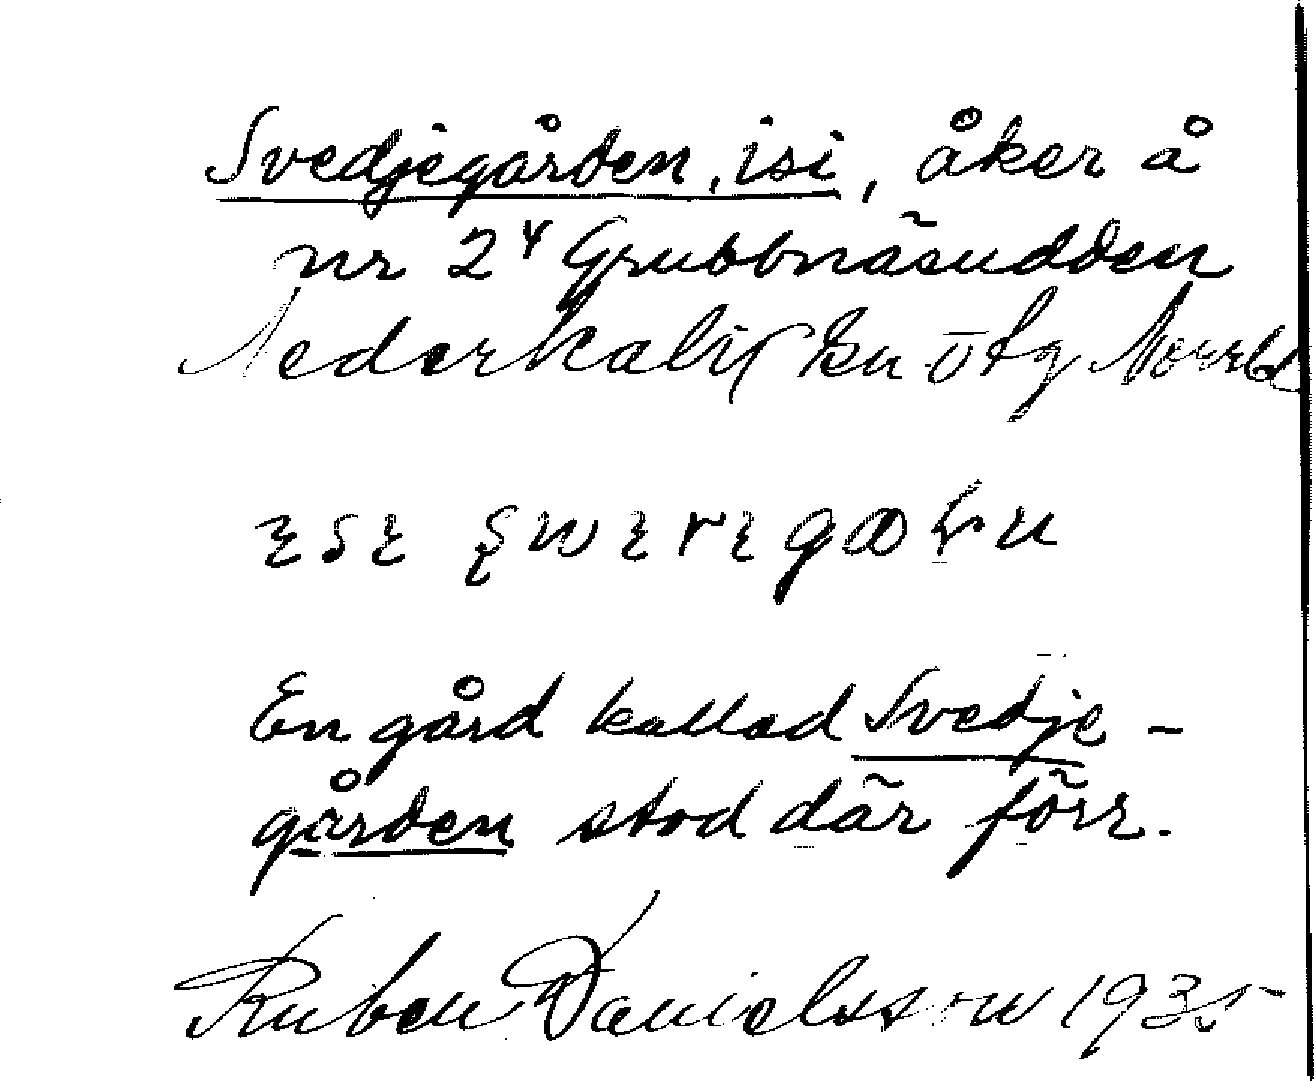 Svedjegården, isi, åker å
nr 2⁴ Grubbnäsudden
Nederkalix sn ö tg Norrb
En gård kallad Svedje-
gården stod där förr.
Ruben Danielsson 1935